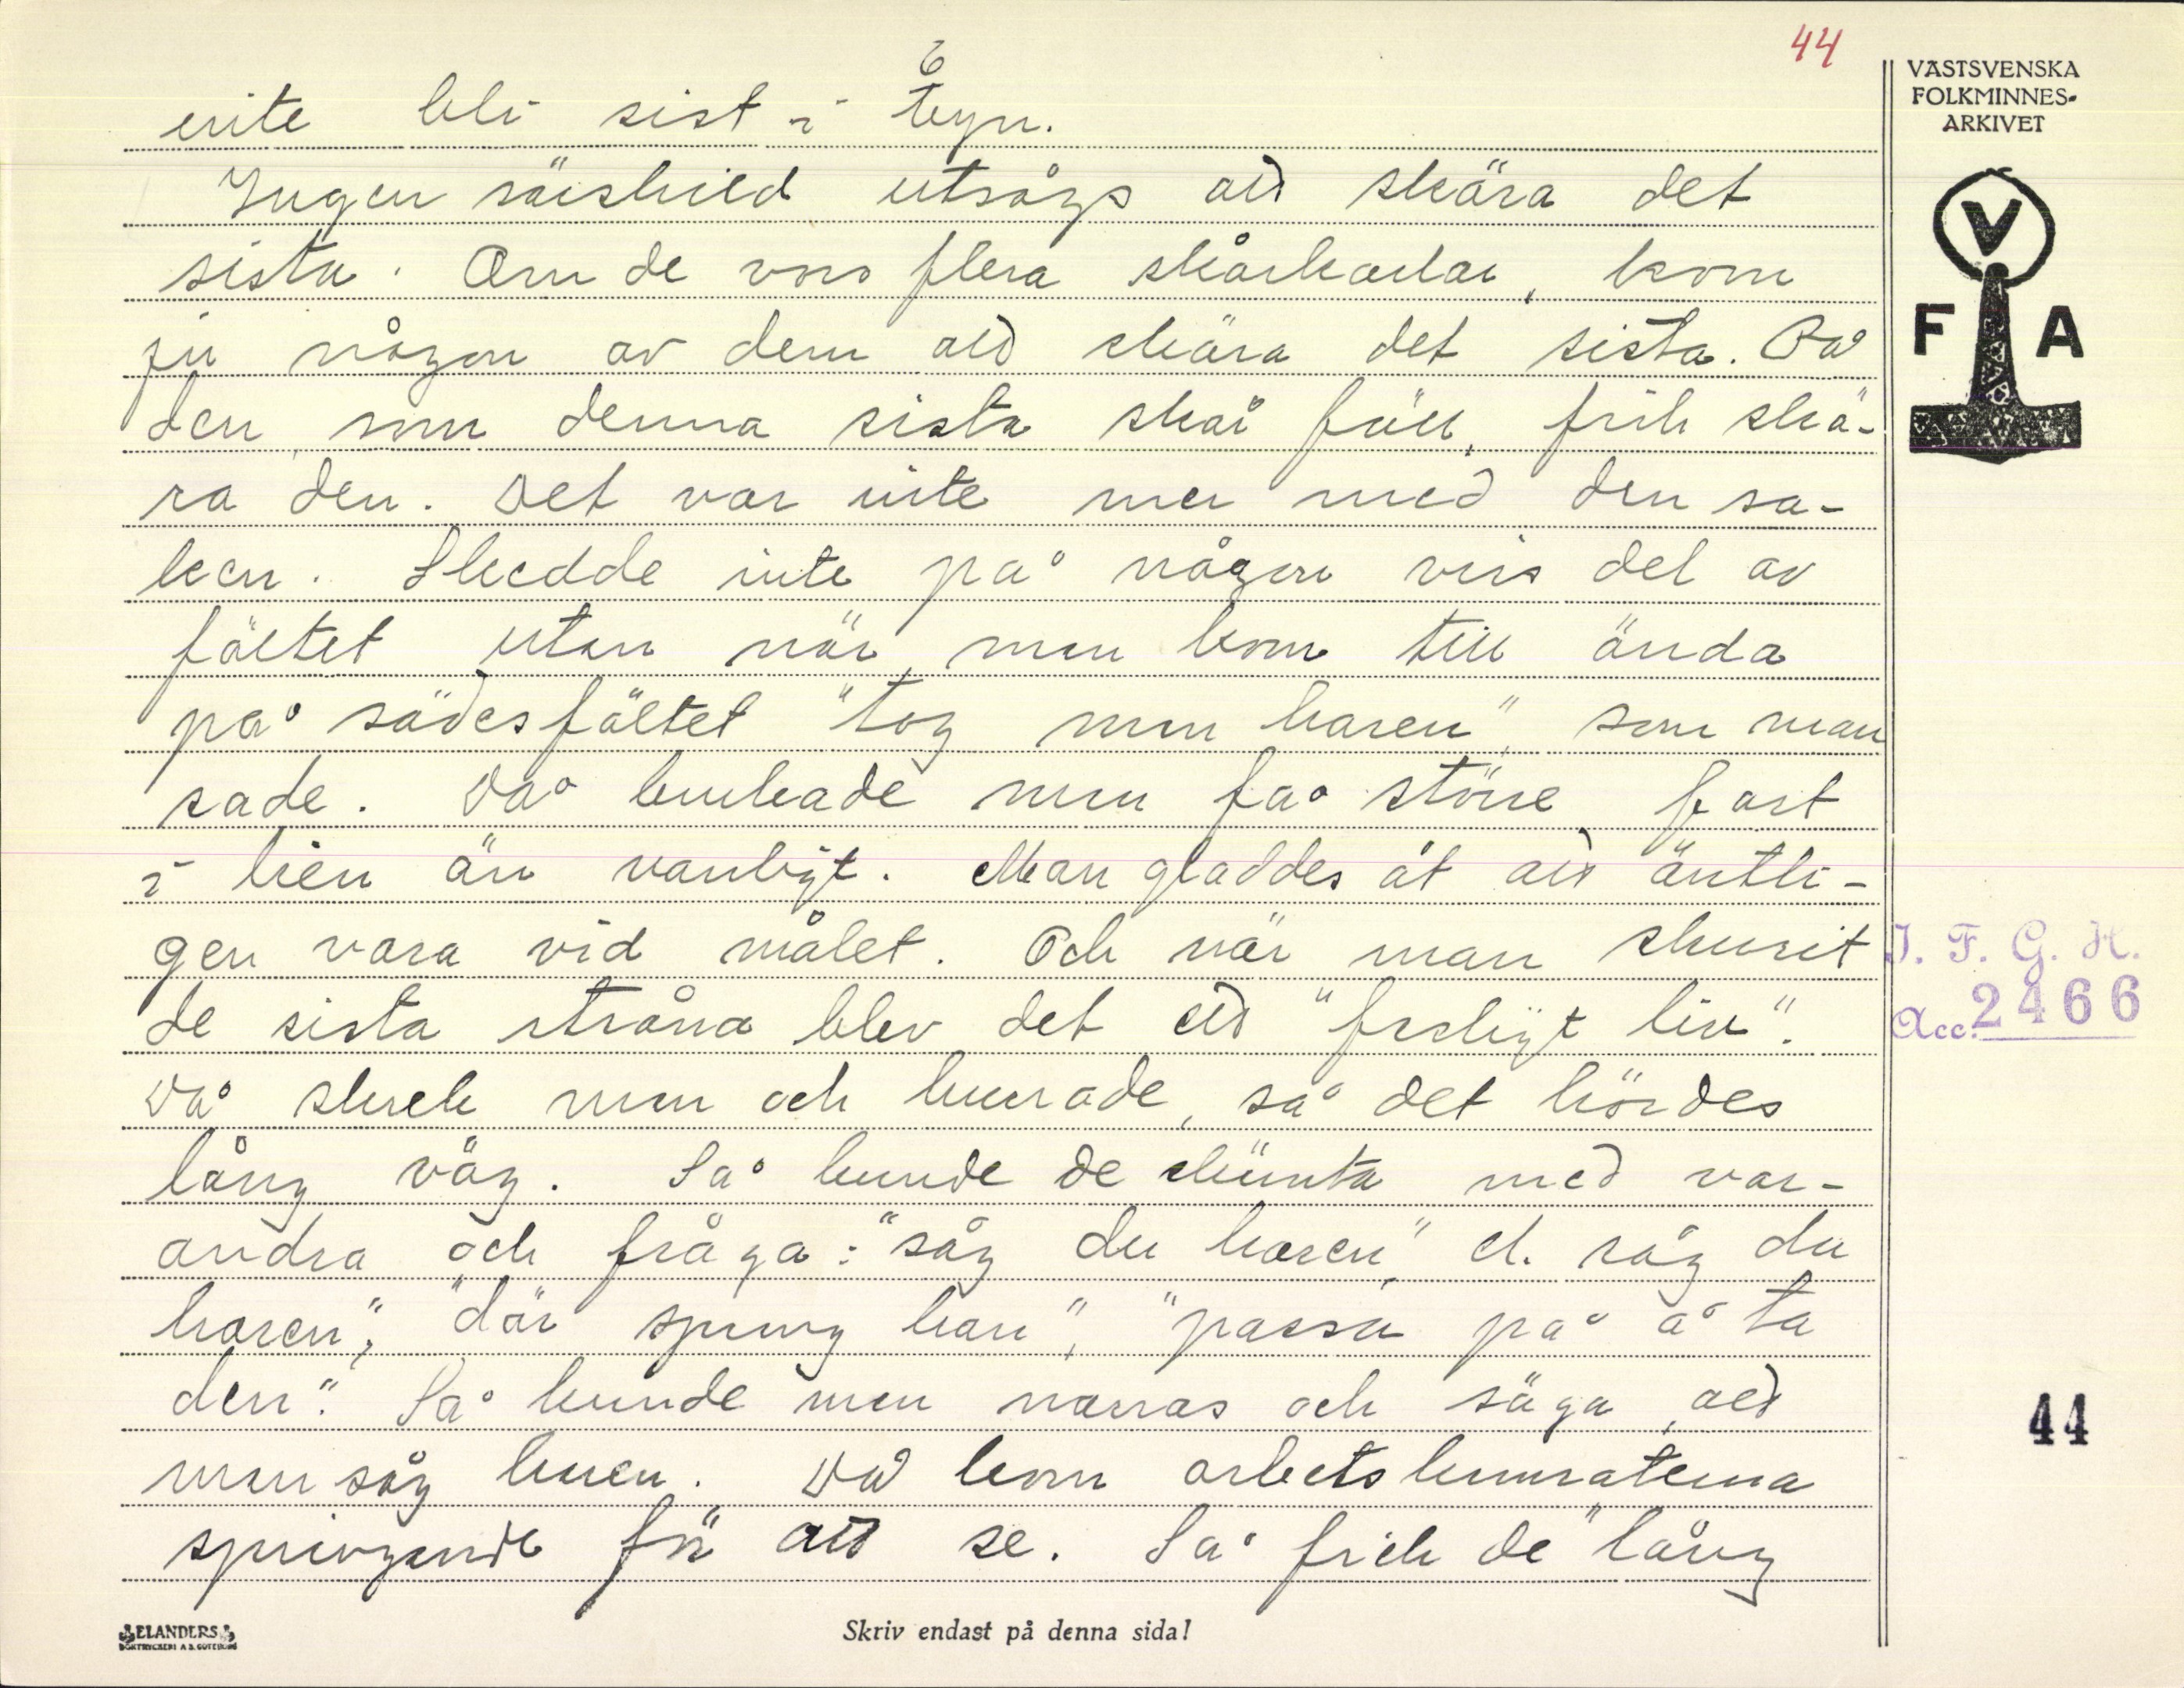 44
6
inte bli sist i byn.
Ingen särskild utsågs att skära det
sista. Om de voro flera skårkarlar, kom
ju någon av dem att skära det sista. På
den som denna sista skår föll, fick skä-
ra den. Det var inte mer med den sa-
ken. Skedde inte på någon viss del av
fältet utan när man kom till ända
på sädesfältet "tog man haren", som man
sade. Då brukade man få större fart
i lien än vanligt. Man gladdes åt att äntli-
gen vara vid målet. Och när man skurit
de sista stråna blev det ett "farligt liv".
Då skrek man och hurrade, så det hördes
lång väg. Så kunde de skämta med var-
andra och fråga: "såg du haren", el. såg du
haren", "där sprung han", "passa på å ta
den". Så kunde man narras och säga, att
man såg haren. Då kom arbetskamraterna
springande för att se. Så fick de "lång
VÄSTSVENSKA
FOLKMINNES-
ARKIVET
V
F A
I. F. G. H.
Acc. 2466
44
ELANDERS
BOKTRYCKERI A.B. GÖTEBORG
Skriv endast på denna sida!